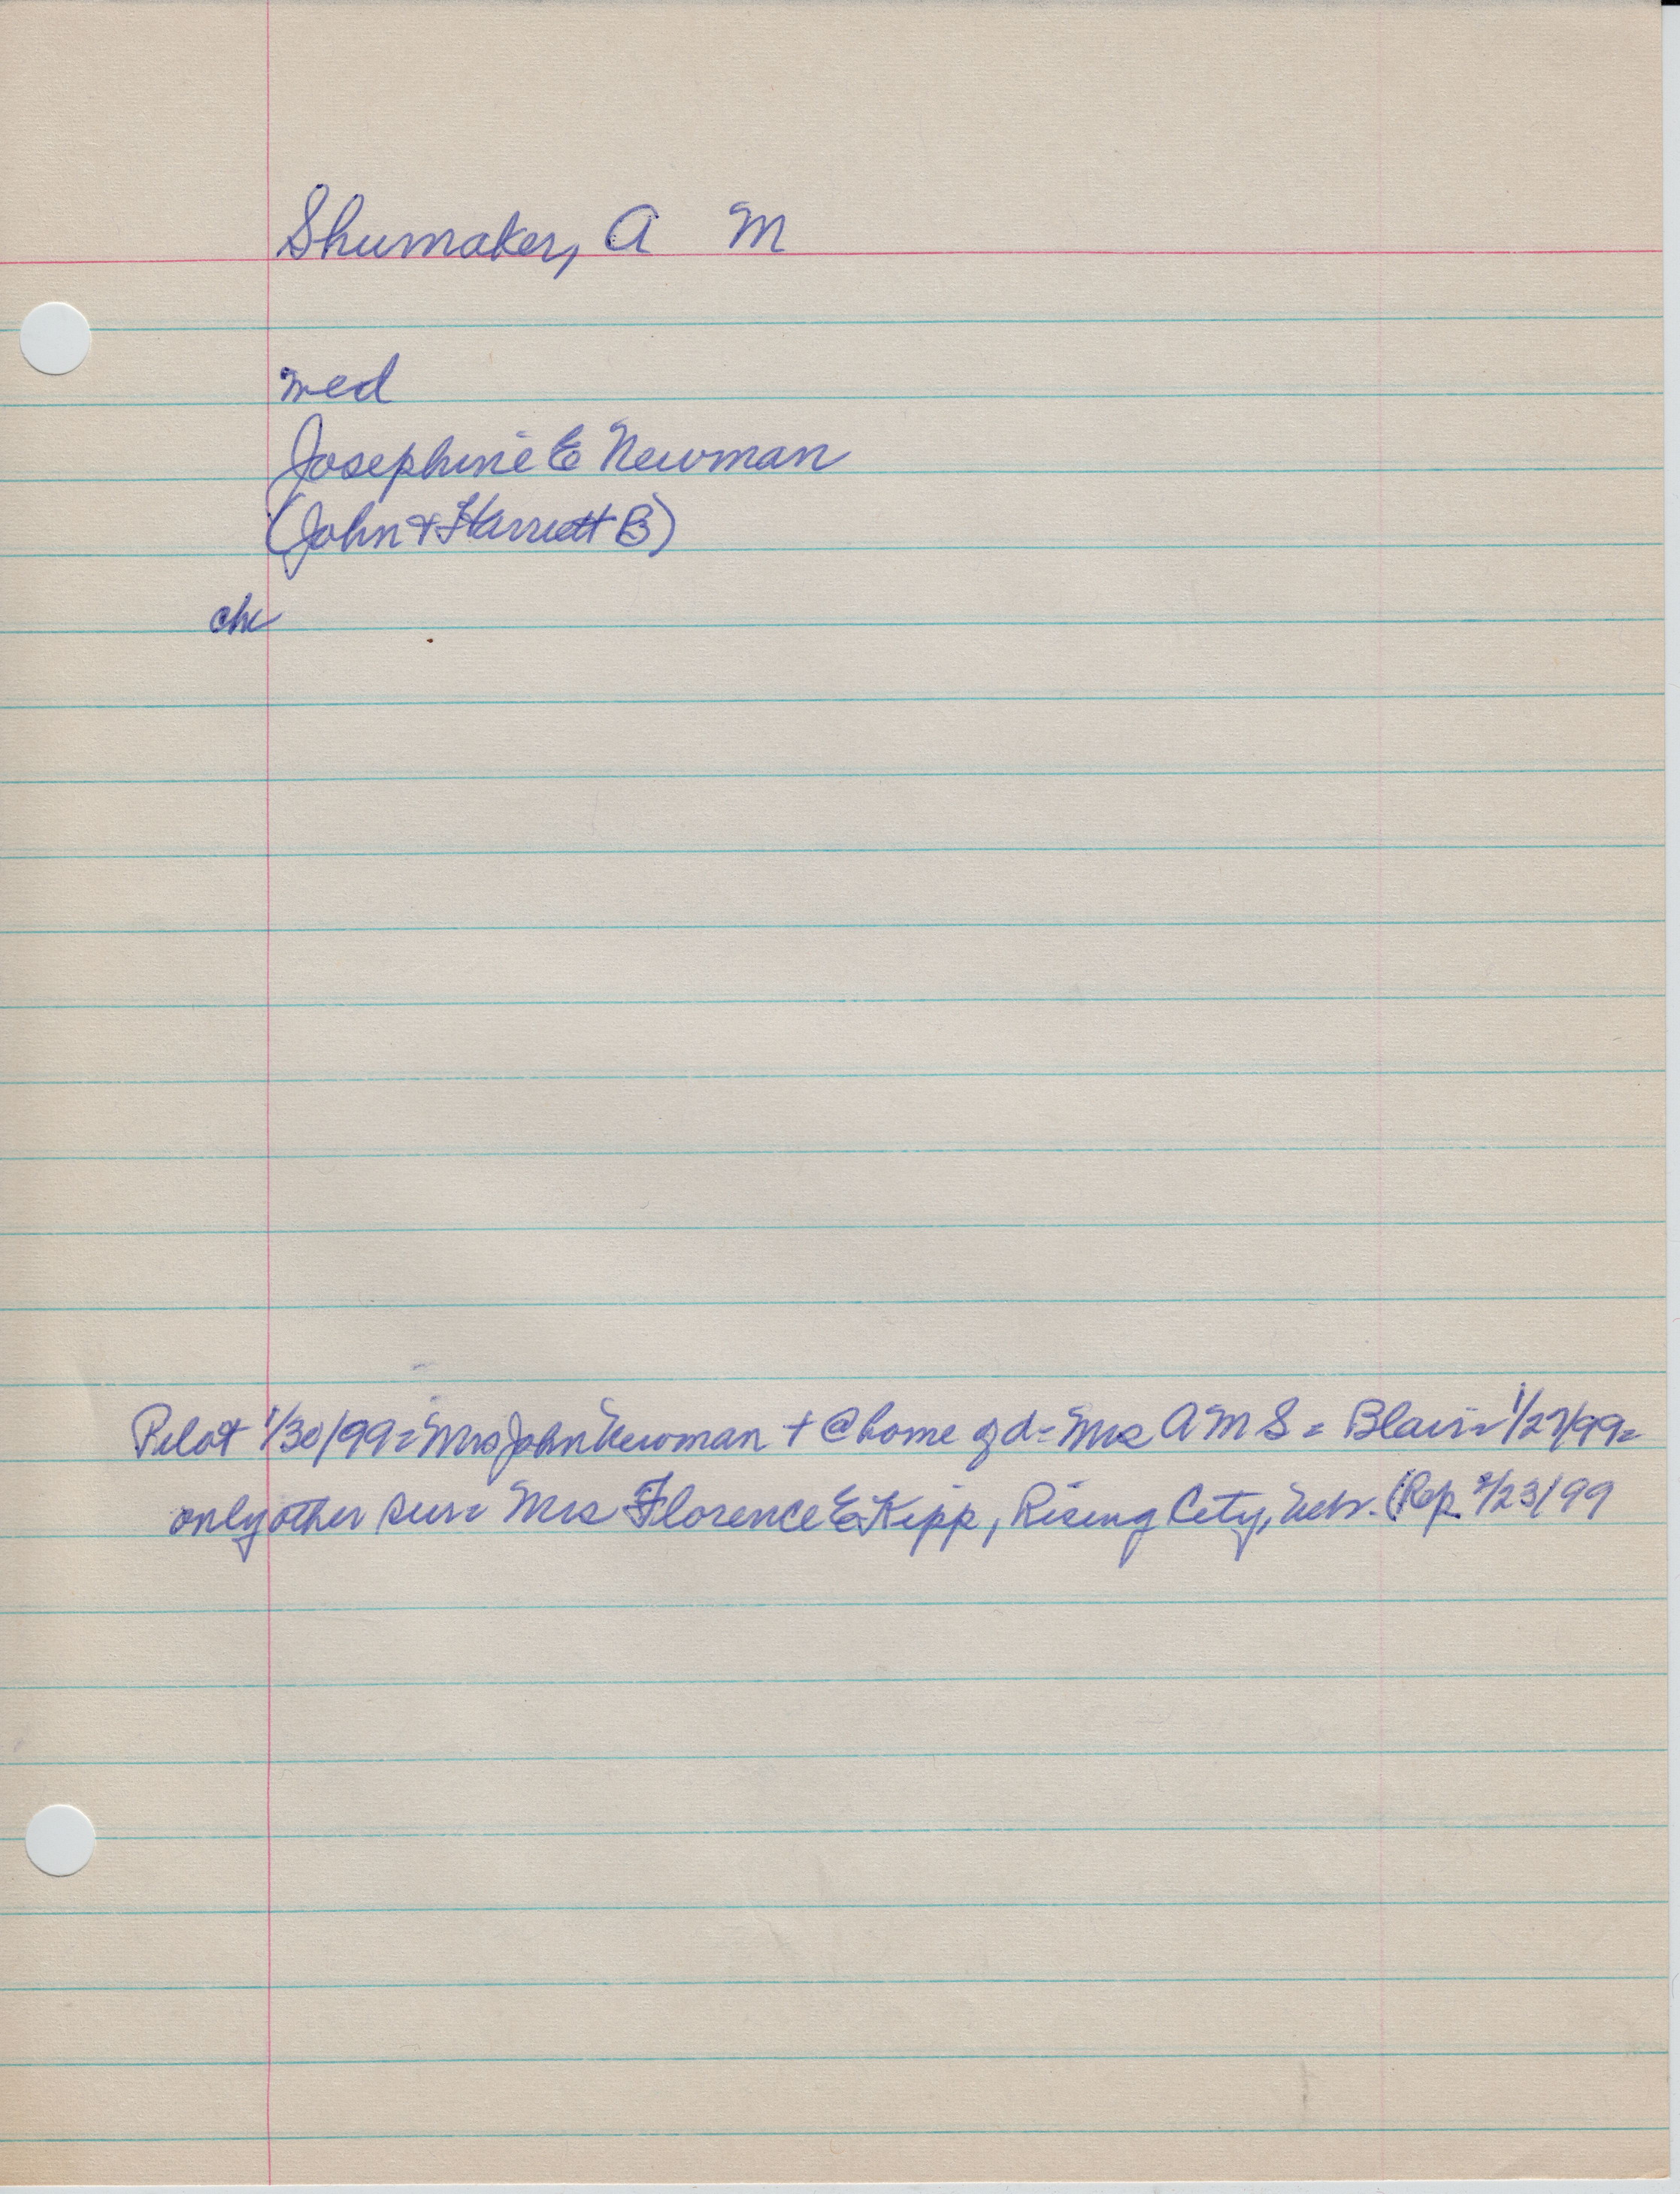 Shumaker, A M
med
Josephine E Newman
(John + Harriett B)
ch
Pilot 1/30/99 = Mrs John Newman + @ home of d = Mrs A M S = Blair = 1/27/99 =
only other sur = Mrs Florence E Kipp, Rising City, Nebr. (Rep 2/23/99